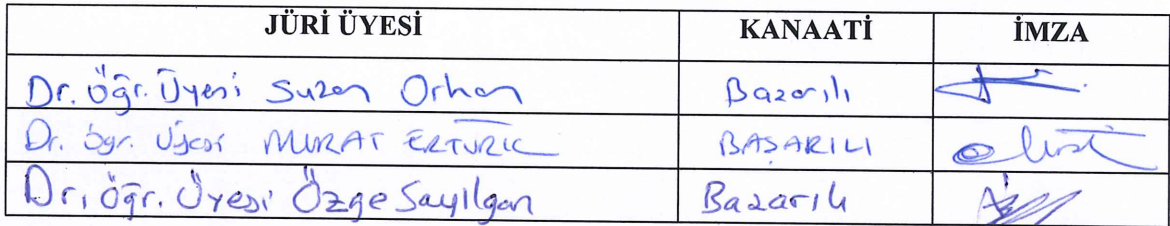 JÜRİ ÜYESİ KANAATİ İMZA
Dr. Öğr. Üyesi Suzan Orhan Başarılı
Dr. Öğr. Üyesi MURAT ERTÜRK BAŞARILI
Dr. Öğr. Üyesi Özge Sayılgan Başarılı